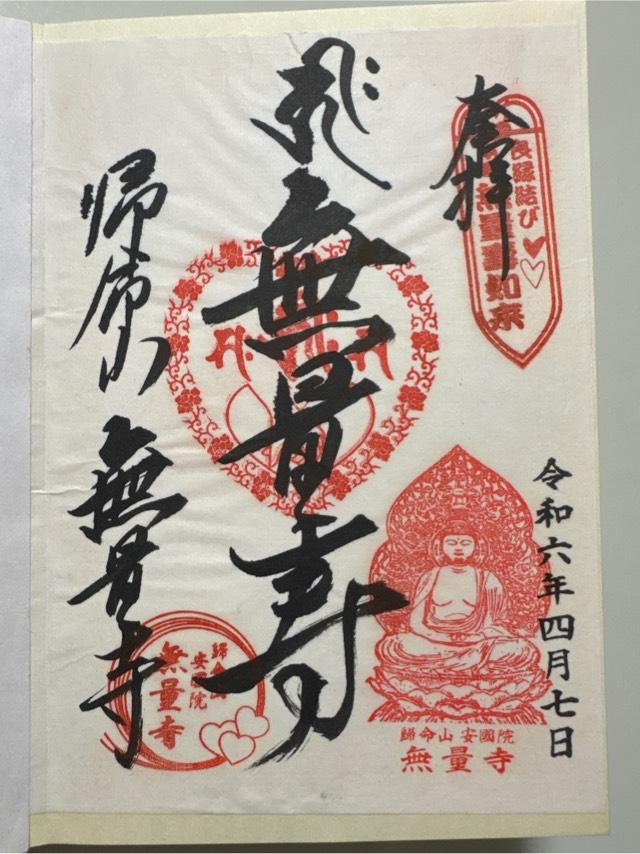 奉拝
良縁結び
無量寿如来
無量寿
令和六年四月七日
歸命山 安國院
無量寺
帰命山
無量寺
歸命山
安國院
無量寺